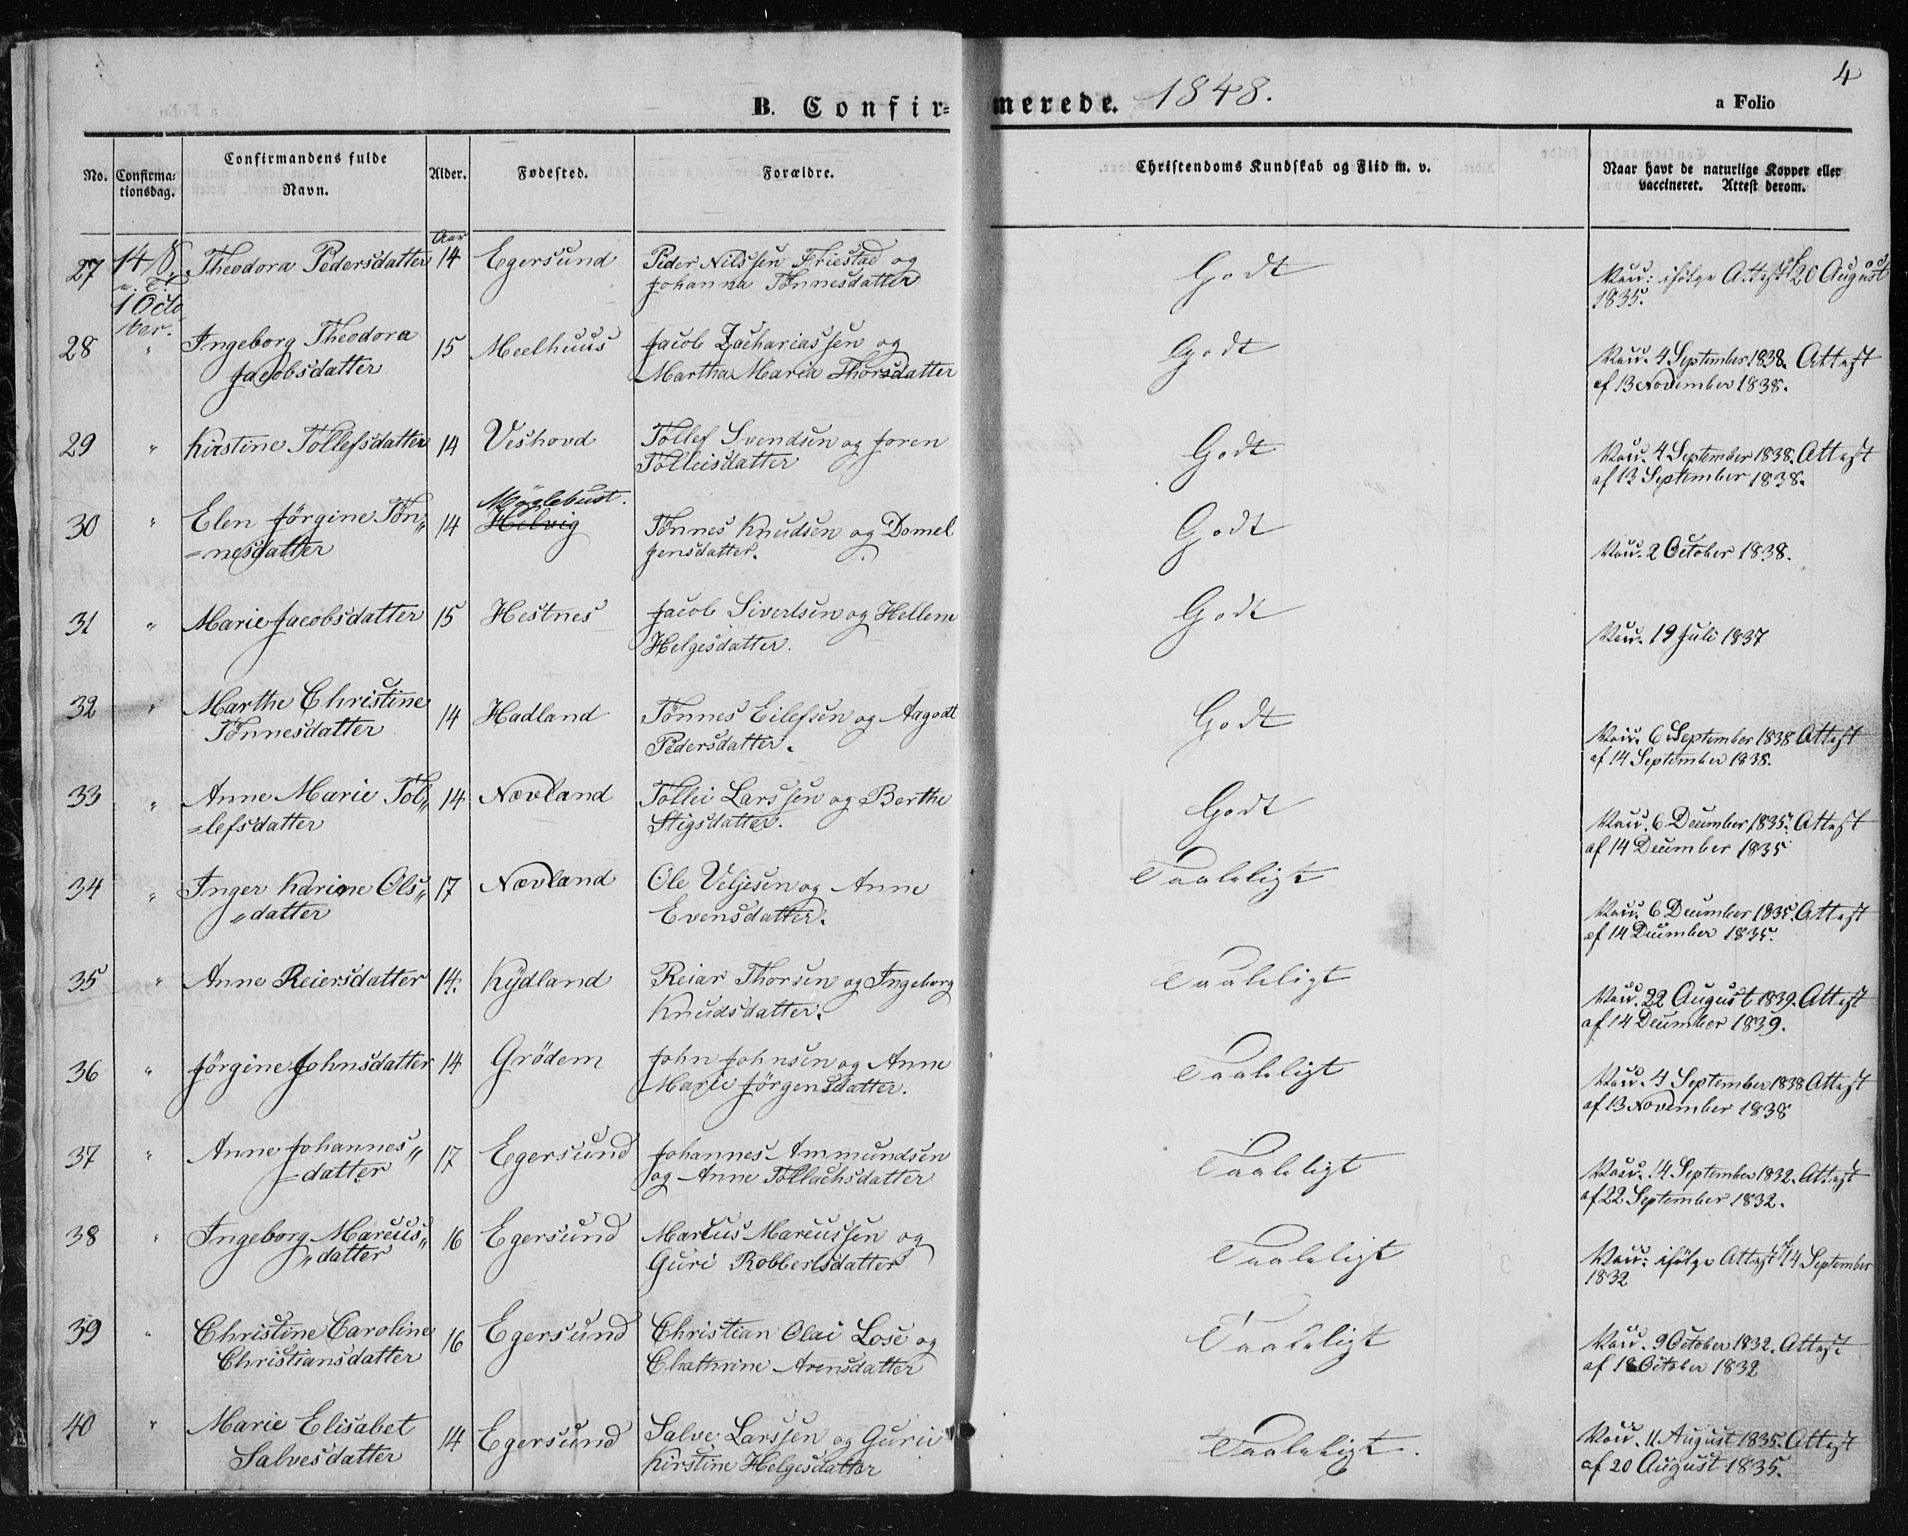 4
B. Confirmerede. 1848. a Folio
No. Confirmationsdag. Confirmandens fulde Navn. Alder. Fødested. Forældre. Christendoms Kundskab og Flid m. v. Naar havt de naturlige Kopper eller vaccineret. Attest derom.
Aar
27 1 Octo Theodora Pedersdatter 14 Egersund Peder Nilssen Friestad og Godt Vacc: ifølge Attest af 20 August
ber. Johanna Tønnesdatter 1835.
28 " Ingeborg Theodora 15 Meelhuus Jacob Zachariassen og Godt Vacc. 4 September 1838. Attest
Jacobsdatter Martha Maria Thorsdatter af 13 November 1838.
29 " Kirstine Tollefsdatter 14 Veshovd Tollef Svendsen og Joren Godt Vacc. 4 September 1838. Attest
Tolleisdatter af 13 September 1838.
Møglebust.
30 " Elen Jørgine Tøn„ 14 Helvig Tønnes Knudsen og Domel Godt
=nesdatter gensdatter. Vacc. 2 October 1838.
31 " Marie Jacobsdatter 15 Hestnes Jacob Sivertsen og Hellene Godt
Helgesdatter. Vacc. 19 Juli 1837
32 " Marthe Christine 14 Hadland Tønnes Eilefsen og Aagodt Godt Vacc. 6 September 1838 Attest
Tønnesdatter Pedersdatter. af 14 September 1838.
33 " Anne Marie Tol„ 14 Nævland Tollei Larssen og Berthe Godt Vacc. 6 December 1835. Attest
=lefsdatter Stigsdatter. af 14 December 1835
34 " Inger Karine Ols„ 17 Nævland Ole Veljesen og Anne Taaleligt Vacc. 6 December 1835. Attest
„datter Evensdatter. af 14 December 1835.
35 " Anne Reiersdatter 14. Kydland Reiar Thorsen og Ingeborg Taaleligt Vacc. 22 August 1839. Attest
Knudsdatter. af 14 December 1839.
36 " Jørgine Johnsdatter 14 Grödem John Johnsen og Anne Taaleligt Vacc. 4 September 1838 Attest
Marie Jørgensdatter. af 13 November 1838
37 " Anne Johannes„ 17 Egersund Johannes Ammundsen Taaleligt Vacc. 14 September 1832. Attest
=datter og Anne Tollachsdatter af 22 September 1832.
38 " Ingeborg Marcus„ 16 Egersund Marcus Marcussen og Taaleligt Vacc: ifølge Attest af 14 September
„datter Guri Robbertsdatter 1832
39 " Christine Caroline 16 Egersund Christian Olai Lose og Taaleligt Vacc. 9 October 1832. Attest
Christiansdatter Chathrine Arensdatter af 18 October 1832
40 " Marie Elisabet 14 Egersund Salve Larssen og Guri Taaleligt. Vacc. 11 August 1835. Attest
Salvesdatter Kirstine Helgesdatter af 20 August 1835.